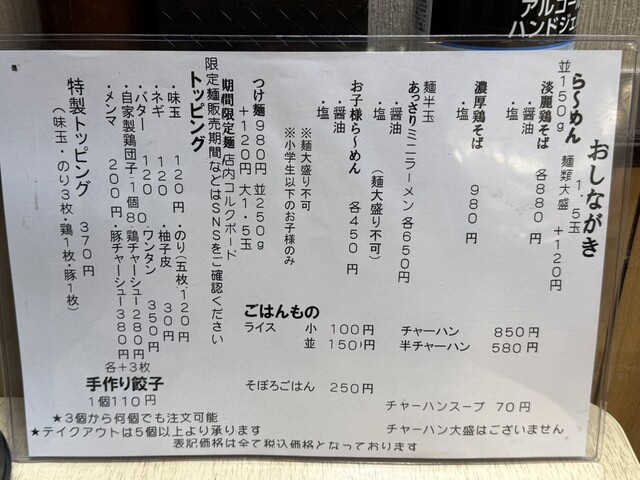 アルコー
ハンドジェ
おしながき
ら〜めん
並150g 麺類大盛 1.5玉 +120円
淡麗鶏そば 各880円
・醤油
・塩
濃厚鶏そば 980円
・塩
麺半玉
あっさりミニラーメン 各650円
・醤油
・塩 (麺大盛り不可)
お子様ら〜めん 各450円
・醤油
・塩
※麺大盛り不可
※小学生以下のお子様のみ
つけ麺 980円 並250g
+120円 大1.5玉
期間限定麺 店内コルクボード
限定麺販売期間などはSNSをご確認ください
トッピング
・味玉 120円 ・のり(五枚)120円
・ネギ 120 ・柚子皮 30円
・バター 120 ・ワンタン 350円
・自家製鶏団子1個80 ・鶏チャーシュー280円
・メンマ 200円 ・豚チャーシュー380円
各+3枚
特製トッピング 370円
(味玉・のり3枚・鶏1枚・豚1枚)
ごはんもの
ライス 小 100円
並 150円
そぼろごはん 250円
チャーハン 850円
半チャーハン 580円
チャーハンスープ 70円
チャーハン大盛はございません
手作り餃子
1個110円
★3個から何個でも注文可能
★テイクアウトは5個以上より承ります
表記価格は全て税込価格となっております